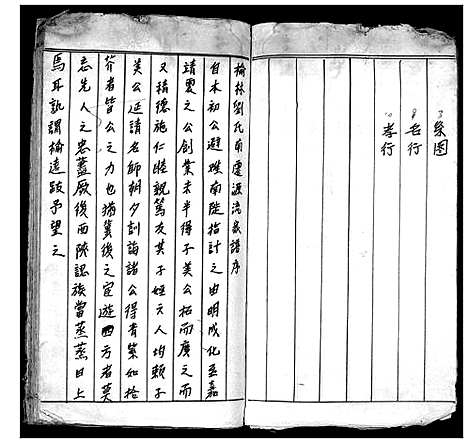 系图
名行
孝行
榆林劉氏南遷源流家譜序
自本初公避難南陡指計之由明成化至嘉
靖震之公創業未半得子美公拓而廣之而
又積德施仁睦親篤友其子姪六人均賴子
美公延請名師朝夕訓誨諸公得青紫如拾
芥者皆公之力也猶冀後之宦遊西方者莫
忘先人之忠蓋厥後西陝認族當蒸蒸日上
焉耳孰謂榆遠跂予望之